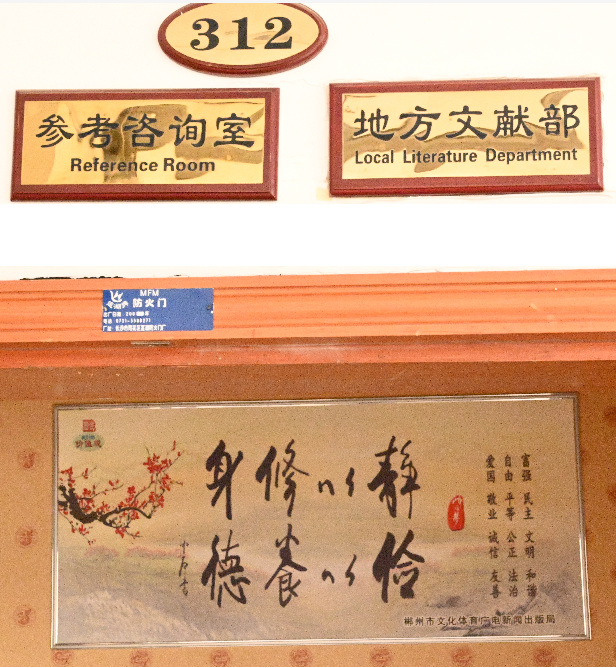 312
参考咨询室
Reference Room
地方文献部
Local Literature Department
MFM
防火门
富强 民主 文明 和谐
自由 平等 公正 法治
爱国 敬业 诚信 友善
静以修身
俭以养德
郴州市文化体育广电新闻出版局